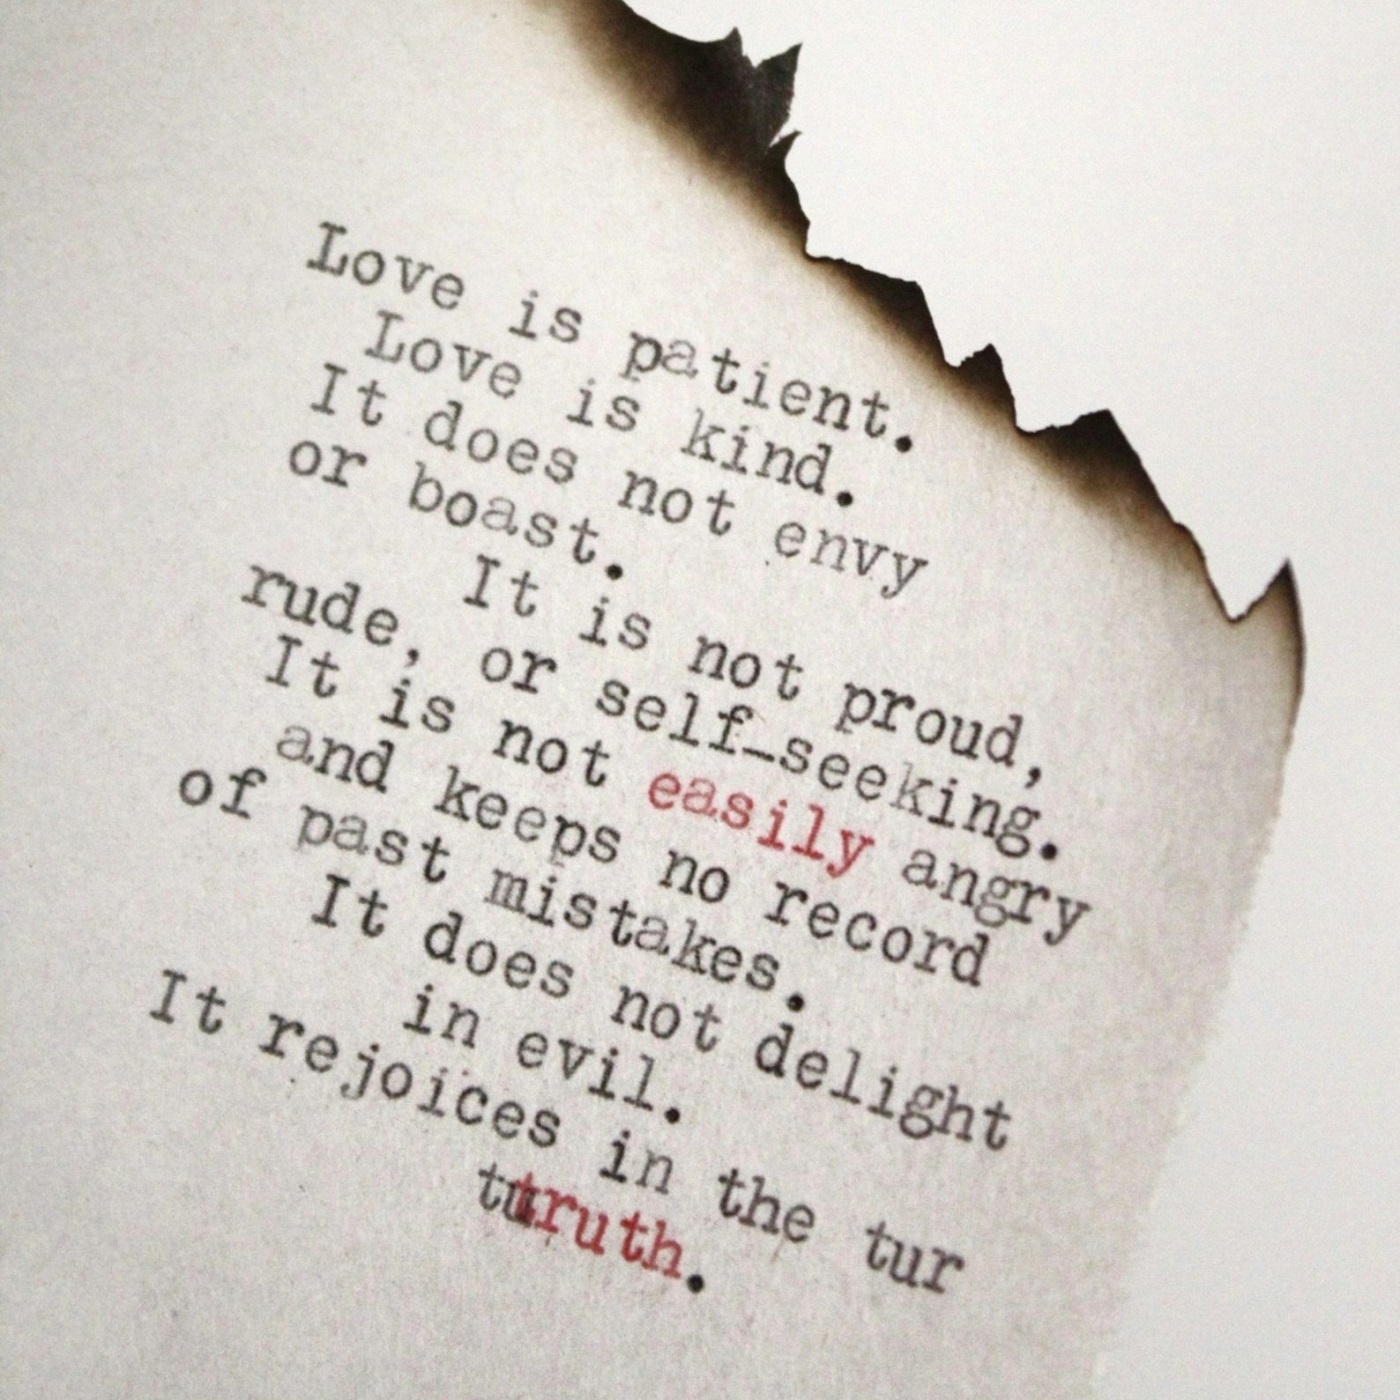 Love is patient.
Love is kind.
It does not envy
or boast.
It is not proud,
rude, or self-seeking.
It is not easily angry
and keeps no record
of past mistakes.
It does not delight
in evil.
It rejoices in the tur
tutruth.